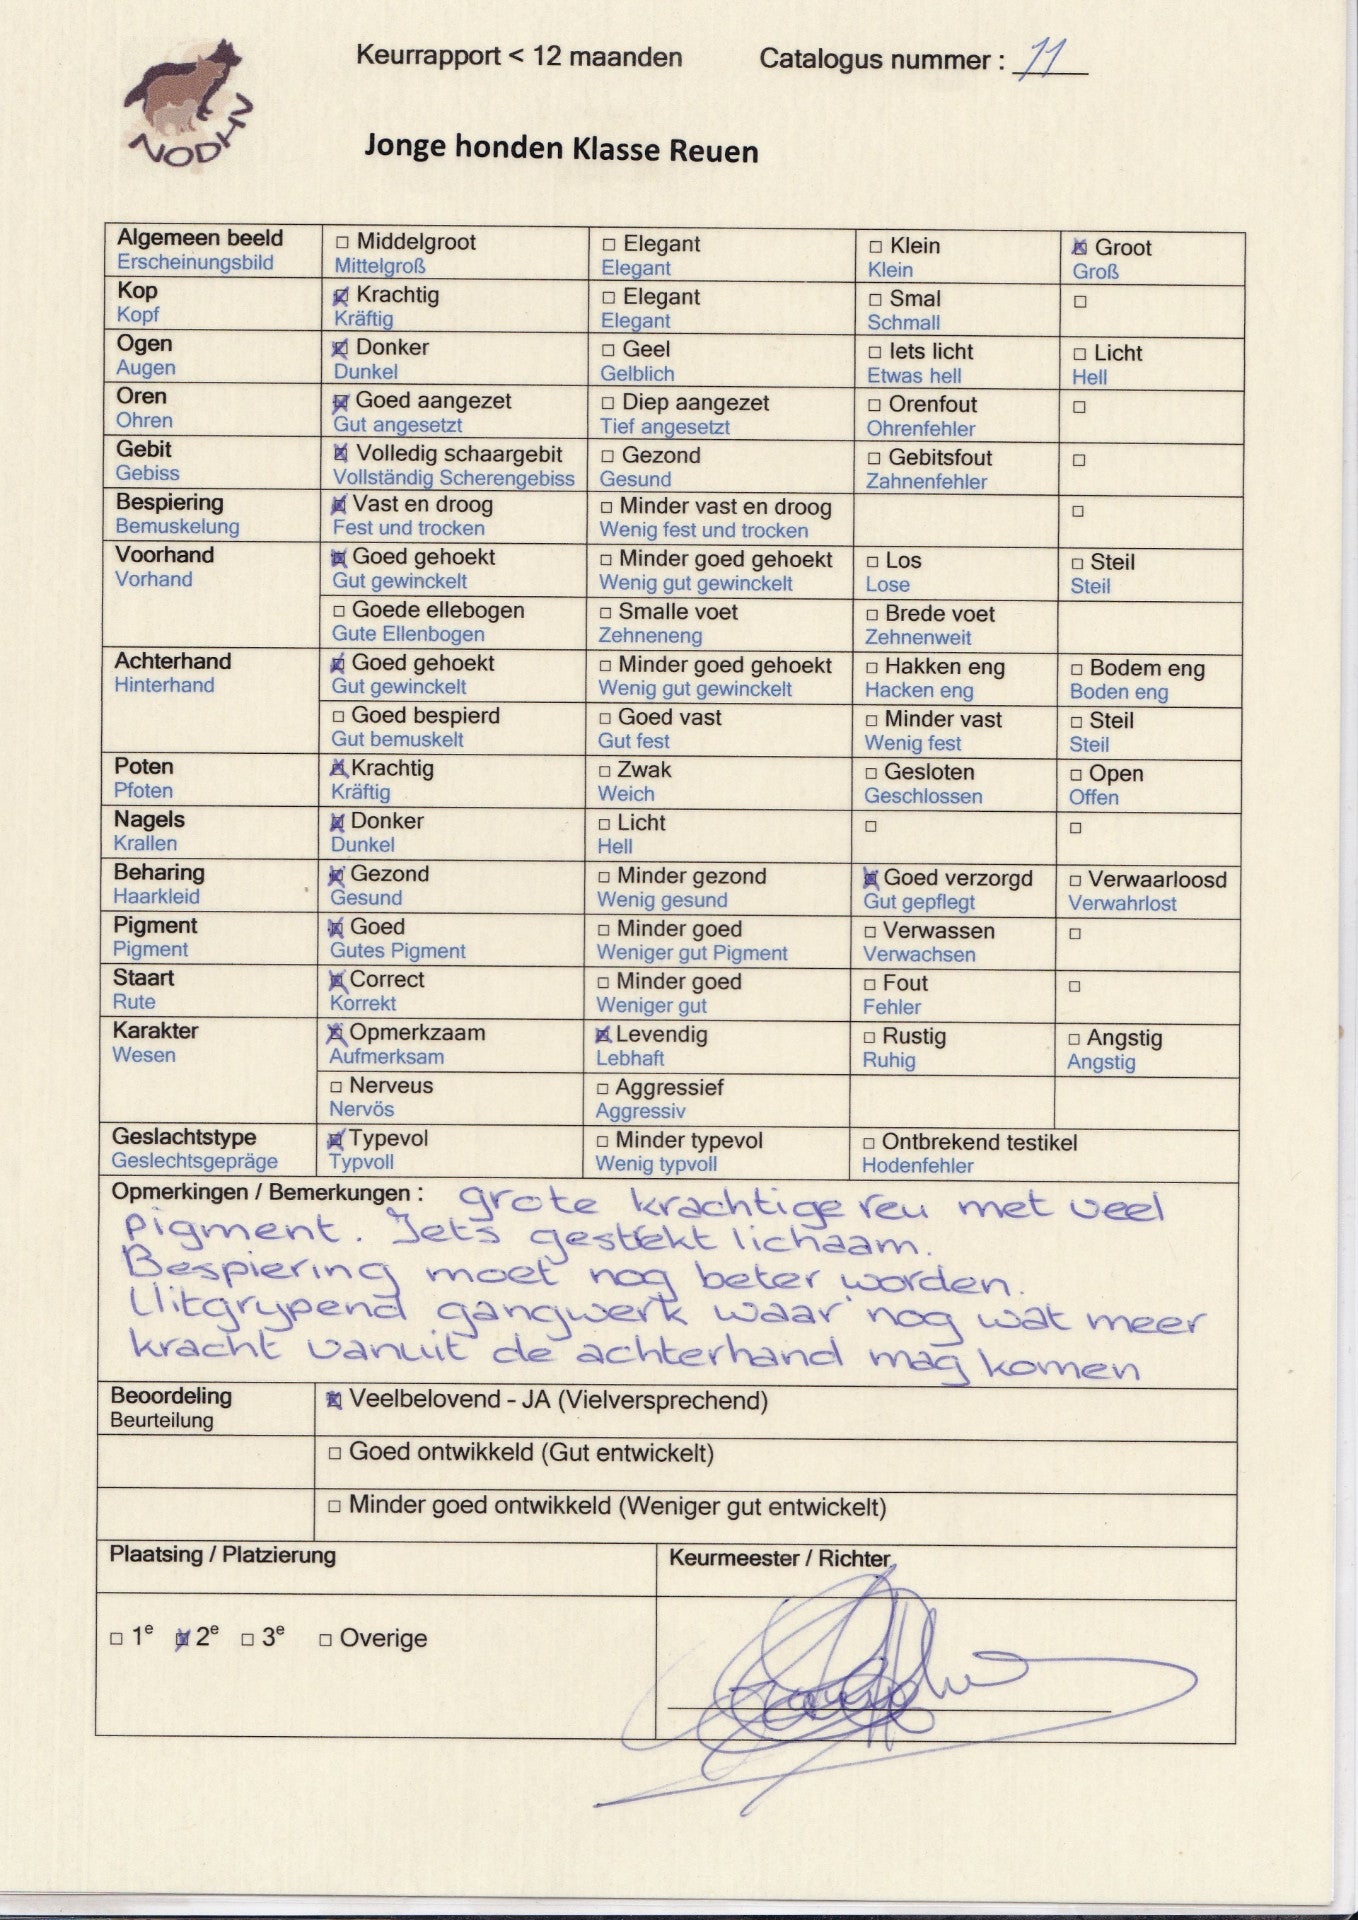 NODHN
Keurrapport < 12 maanden Catalogus nummer : 11
Jonge honden Klasse Reuen
Algemeen beeld ☐ Middelgroot ☐ Elegant ☐ Klein ☒ Groot
Erscheinungsbild Mittelgroß Elegant Klein Groß
Kop ☒ Krachtig ☐ Elegant ☐ Smal ☐
Kopf Kräftig Elegant Schmall
Ogen ☒ Donker ☐ Geel ☐ Iets licht ☐ Licht
Augen Dunkel Gelblich Etwas hell Hell
Oren ☒ Goed aangezet ☐ Diep aangezet ☐ Orenfout ☐
Ohren Gut angesetzt Tief angesetzt Ohrenfehler
Gebit ☒ Volledig schaargebit ☐ Gezond ☐ Gebitsfout ☐
Gebiss Vollständig Scherengebiss Gesund Zahnenfehler
Bespiering ☒ Vast en droog ☐ Minder vast en droog ☐
Bemuskelung Fest und trocken Wenig fest und trocken
Voorhand ☒ Goed gehoekt ☐ Minder goed gehoekt ☐ Los ☐ Steil
Vorhand Gut gewinckelt Wenig gut gewinckelt Lose Steil
☐ Goede ellebogen ☐ Smalle voet ☐ Brede voet
Gute Ellenbogen Zehneneng Zehnenweit
Achterhand ☒ Goed gehoekt ☐ Minder goed gehoekt ☐ Hakken eng ☐ Bodem eng
Hinterhand Gut gewinckelt Wenig gut gewinckelt Hacken eng Boden eng
☐ Goed bespierd ☐ Goed vast ☐ Minder vast ☐ Steil
Gut bemuskelt Gut fest Wenig fest Steil
Poten ☒ Krachtig ☐ Zwak ☐ Gesloten ☐ Open
Pfoten Kräftig Weich Geschlossen Offen
Nagels ☒ Donker ☐ Licht ☐ ☐
Krallen Dunkel Hell
Beharing ☒ Gezond ☐ Minder gezond ☒ Goed verzorgd ☐ Verwaarloosd
Haarkleid Gesund Wenig gesund Gut gepflegt Verwahrlost
Pigment ☒ Goed ☐ Minder goed ☐ Verwassen ☐
Pigment Gutes Pigment Weniger gut Pigment Verwachsen
Staart ☒ Correct ☐ Minder goed ☐ Fout ☐
Rute Korrekt Weniger gut Fehler
Karakter ☒ Opmerkzaam ☒ Levendig ☐ Rustig ☐ Angstig
Wesen Aufmerksam Lebhaft Ruhig Angstig
☐ Nerveus ☐ Aggressief
Nervös Aggressiv
Geslachtstype ☒ Typevol ☐ Minder typevol ☐ Ontbrekend testikel
Geslechtsgepräge Typvoll Wenig typvoll Hodenfehler
Opmerkingen / Bemerkungen : grote krachtige reu met veel
pigment. Iets gestrekt lichaam.
Bespiering moet nog beter worden.
Uitgrypend gangwerk waar nog wat meer
kracht vanuit de achterhand mag komen
Beoordeling ☒ Veelbelovend - JA (Vielversprechend)
Beurteilung
☐ Goed ontwikkeld (Gut entwickelt)
☐ Minder goed ontwikkeld (Weniger gut entwickelt)
Plaatsing / Platzierung Keurmeester / Richter
☐ 1e ☒ 2e ☐ 3e ☐ Overige